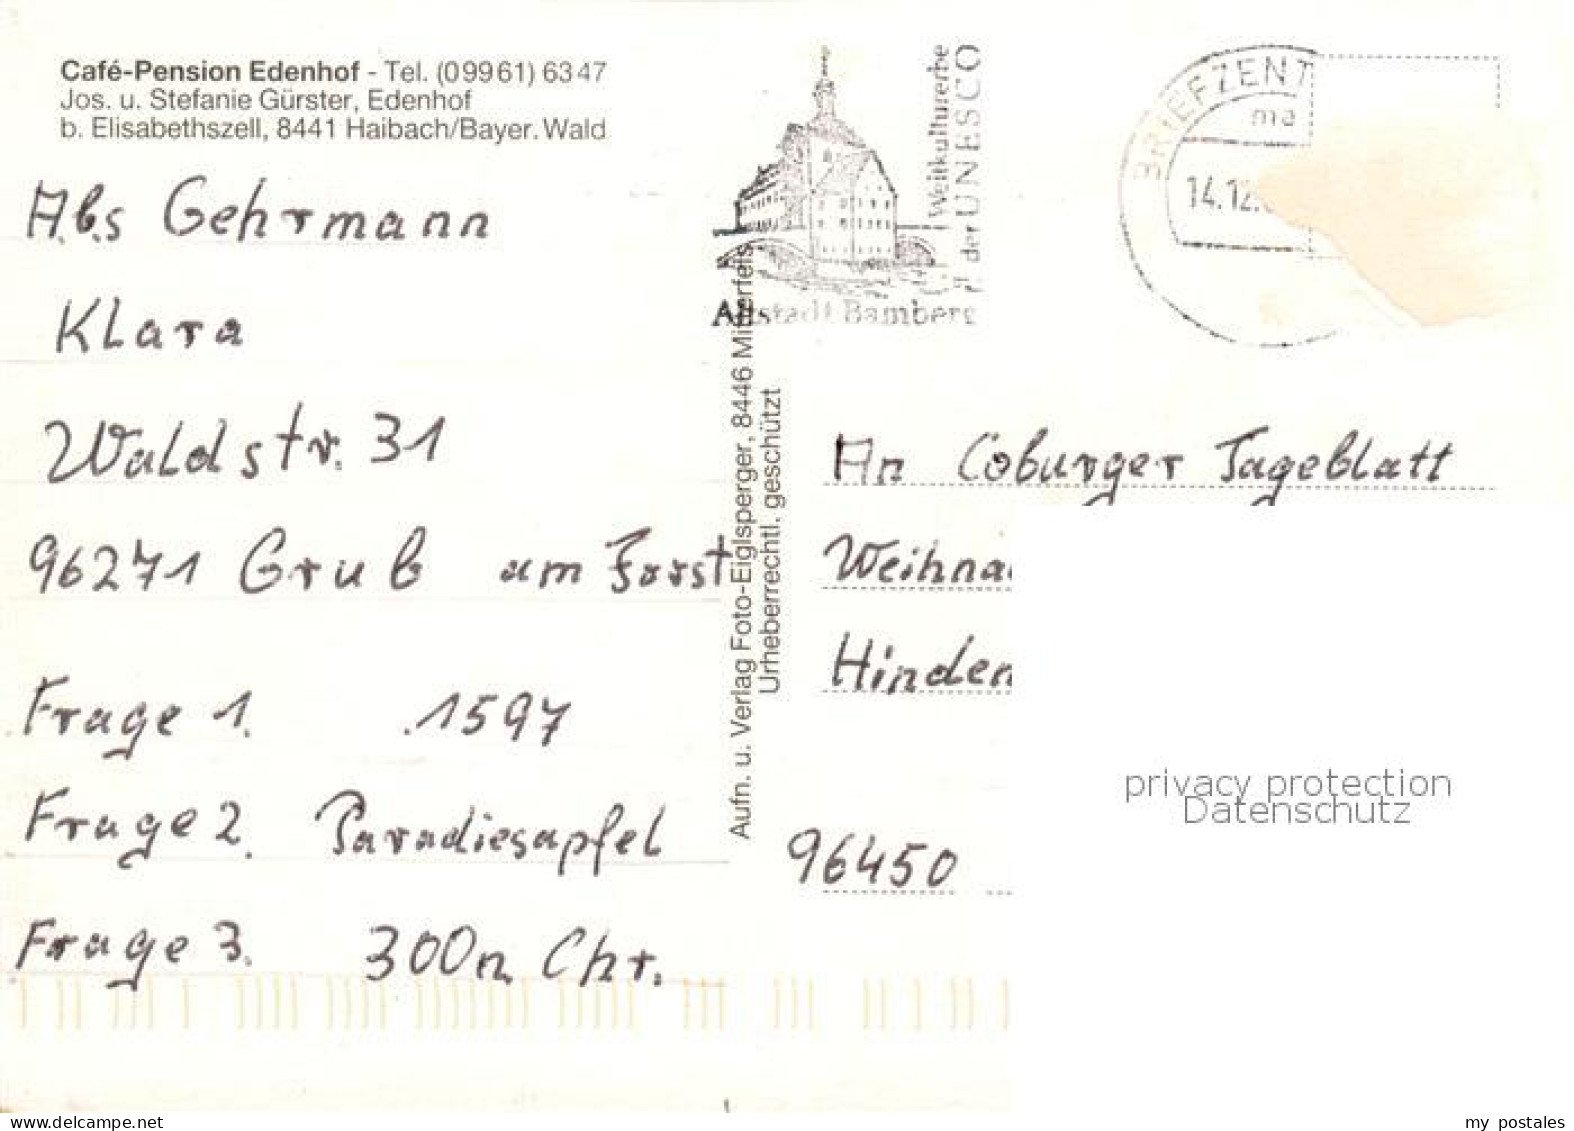 Café-Pension Edenhof - Tel. (09961) 6347
Jos. u. Stefanie Gürster, Edenhof
b. Elisabethszell, 8441 Haibach/Bayer. Wald
Abs Gehrmann
Klara
Waldstr. 31
96271 Grub am Forst
Frage 1. 1597
Frage 2. Paradiesapfel
Frage 3. 300 n Chr.
Aufn. u. Verlag Foto-Eiglsperger, 8446 Mitterfels
Urheberrechtl. geschützt
Weltkulturerbe
der UNESCO
Altstadt Bamberg
BRIEFZENT
14.12.
An Coburger Tageblatt
Weihna
Hinden
96450
privacy protection
Datenschutz
www.delcampe.net
my_postales